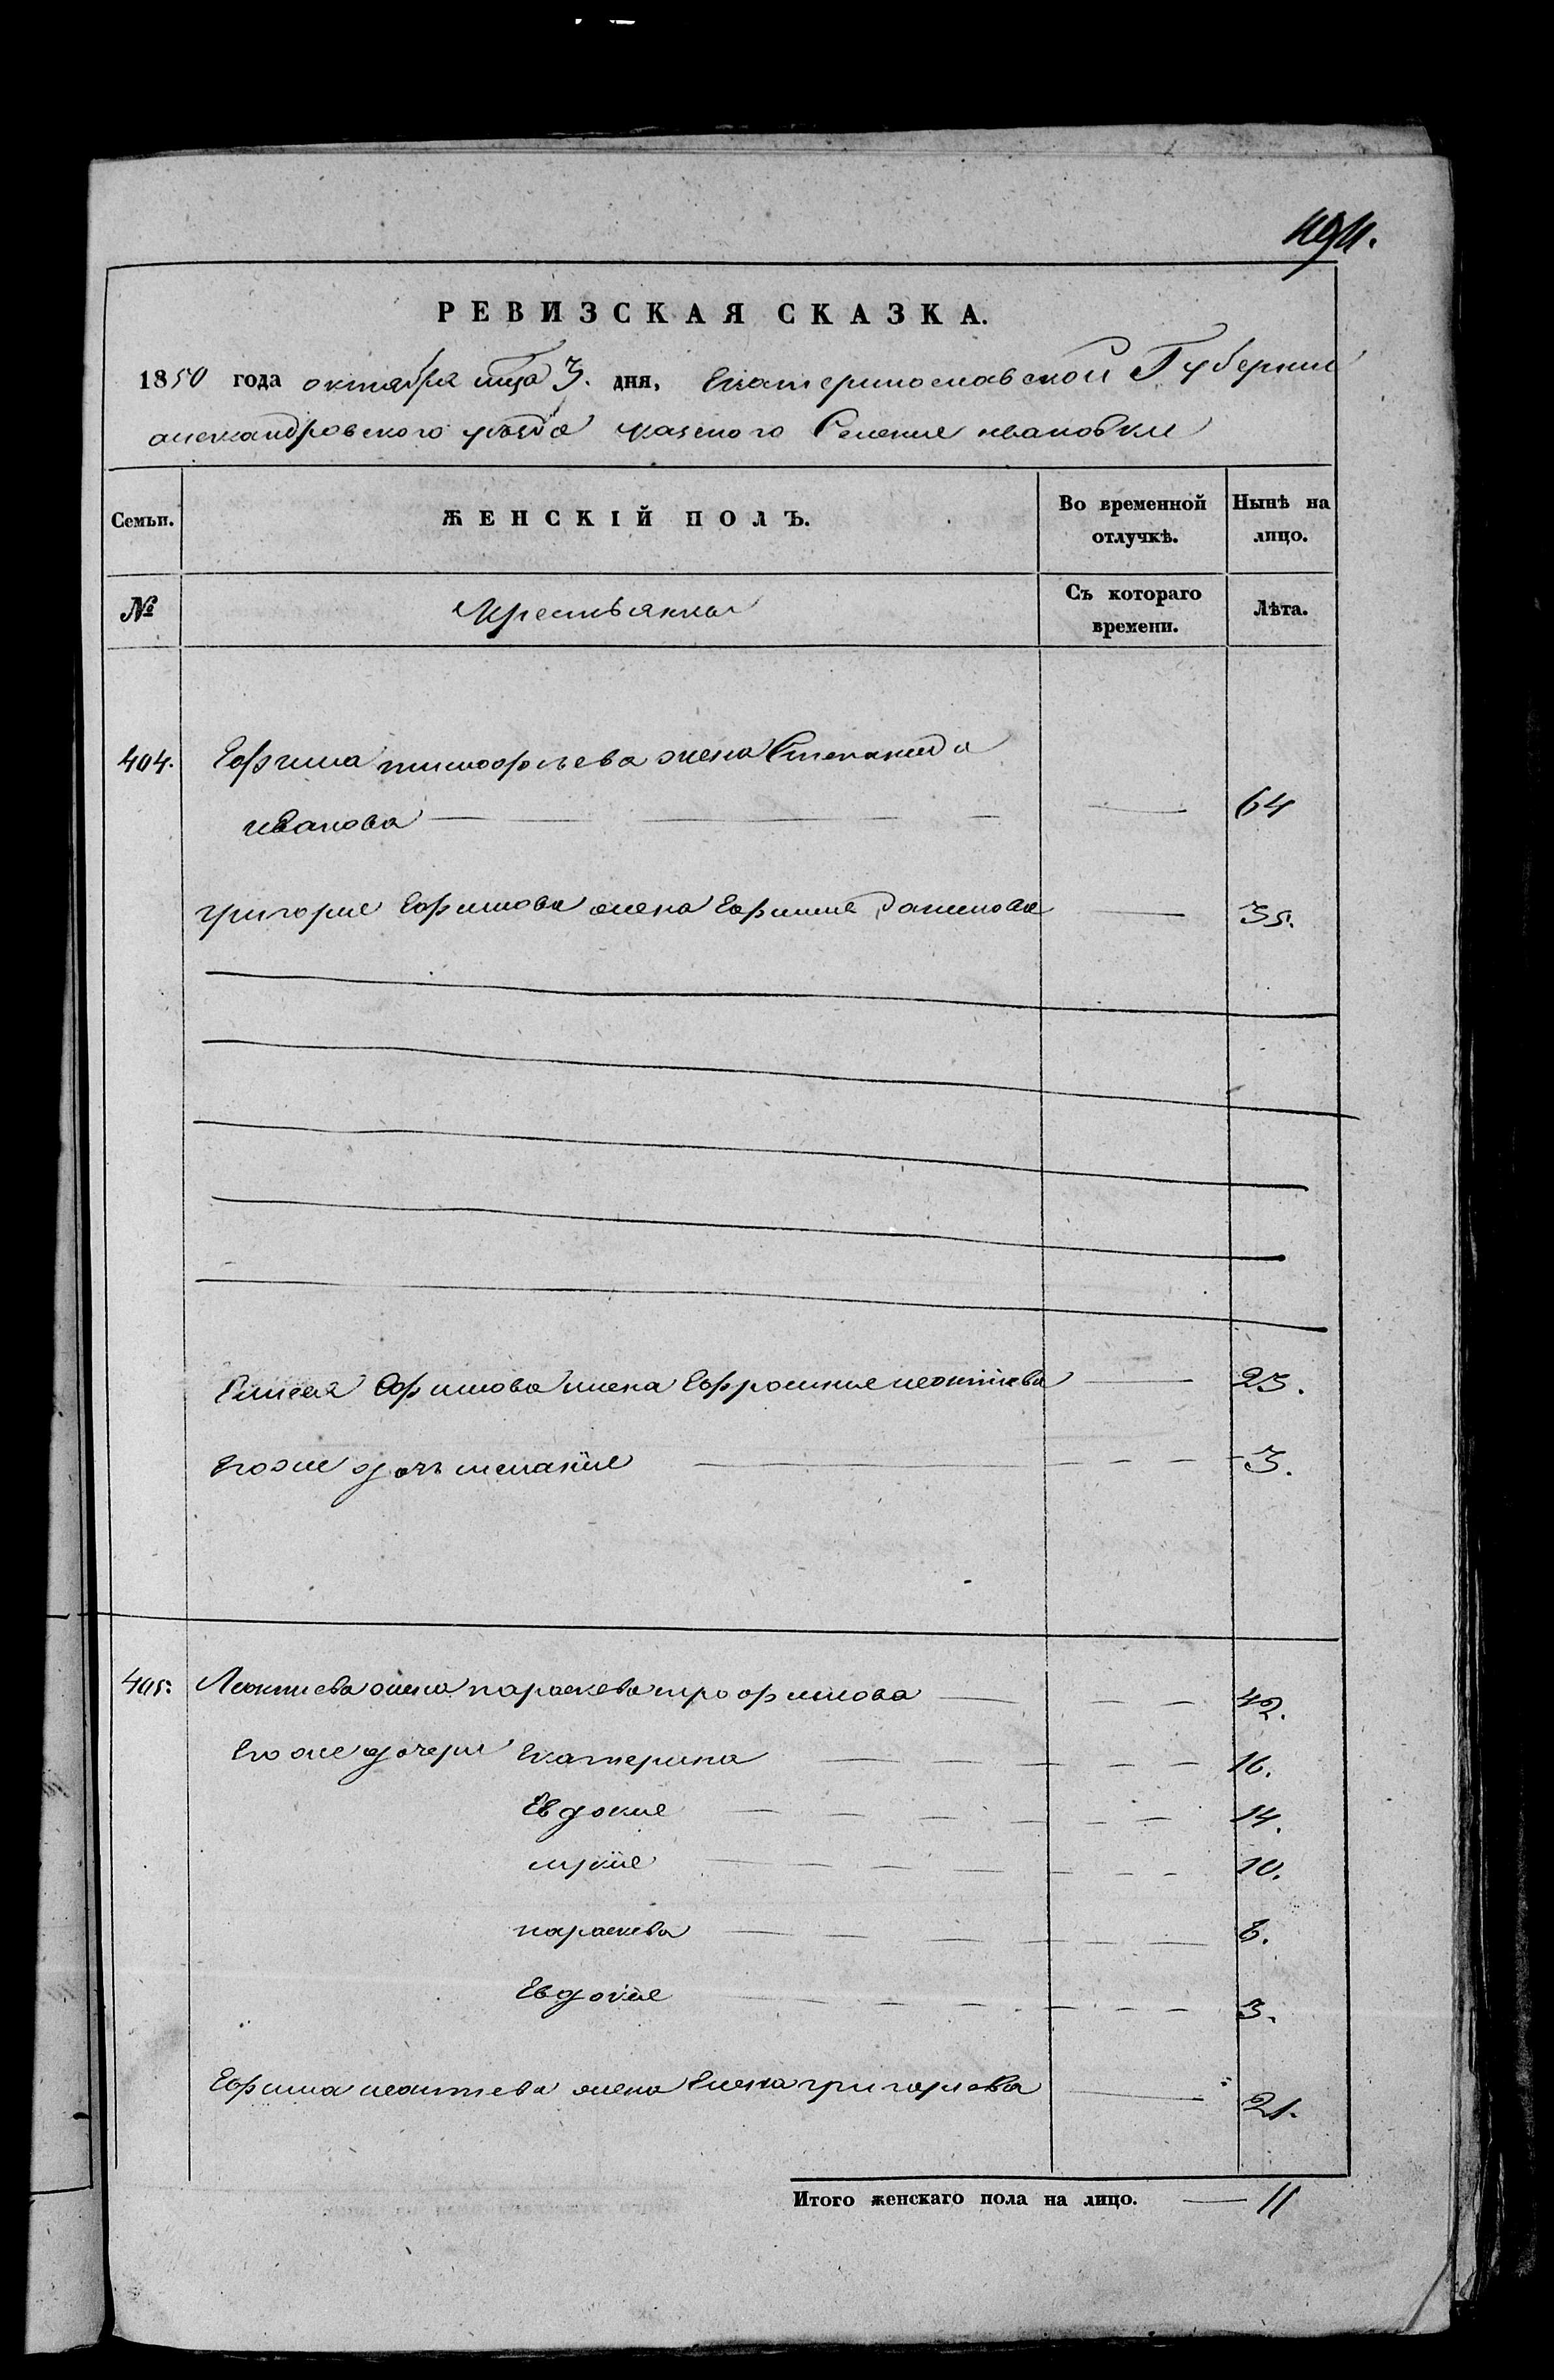 РЕВИЗСКАЯ СКАЗКА.
1850 года октября мца 3. дня, Екатеринославской Губернии
александровского уезда казеного Селения ивановки
Семьи. ЖЕНСКІЙ ПОЛЪ. Во временной отлучкѣ. Нынѣ на лицо.
№ Крестьянка Съ котораго времени. Лѣта.
404. Ефима тимофѣева жена Степанида
иванова 64
григорие Ефимова жена Ефимие данилова 35.
Елисея Ефимова жена Ефросиние леонтиева 23.
Егоже дочь меланїе 3.
405. Леонтиева жена параскева трофимова 42.
Егоже дочери Екатерина 16.
Евдокие 14.
10.
параскева 6.
Евдокїе 3.
Ефима леонтиева жена Елена григориева 21.
Итого женскаго пола на лицо. 11